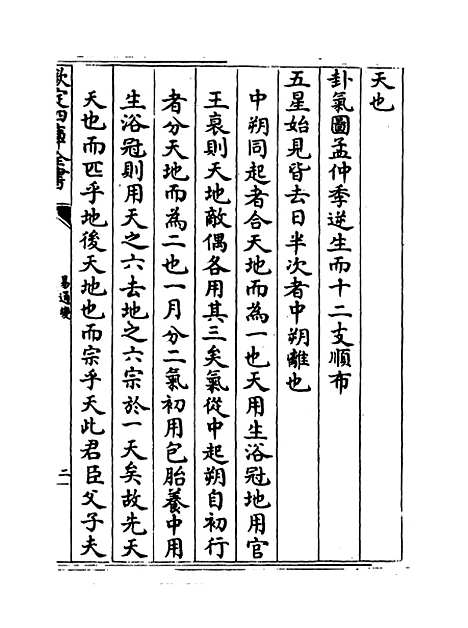 天也
卦氣圖孟仲季逆生而十二支順布
五星始見皆去日半次者中朔離也
中朔同起者合天地而為一也天用生浴冠地用官
王衰則天地敵偶各用其三矣氣從中起朔自初行
者分天地而為二也一月分二氣初用包胎養中用
生浴冠則用天之六去地之六宗於一天矣故先天
天也而匹乎地後天地也而宗乎天此君臣父子夫
欽定四庫全書
易通變
二